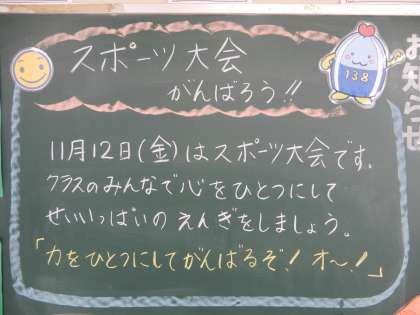 スポーツ大会
がんばろう!!
138
お知らせ
11月12日(金)はスポーツ大会です。
クラスのみんなで心をひとつにして
せいいっぱいのえんぎをしましょう。
「力をひとつにしてがんばるぞ!オ〜!」